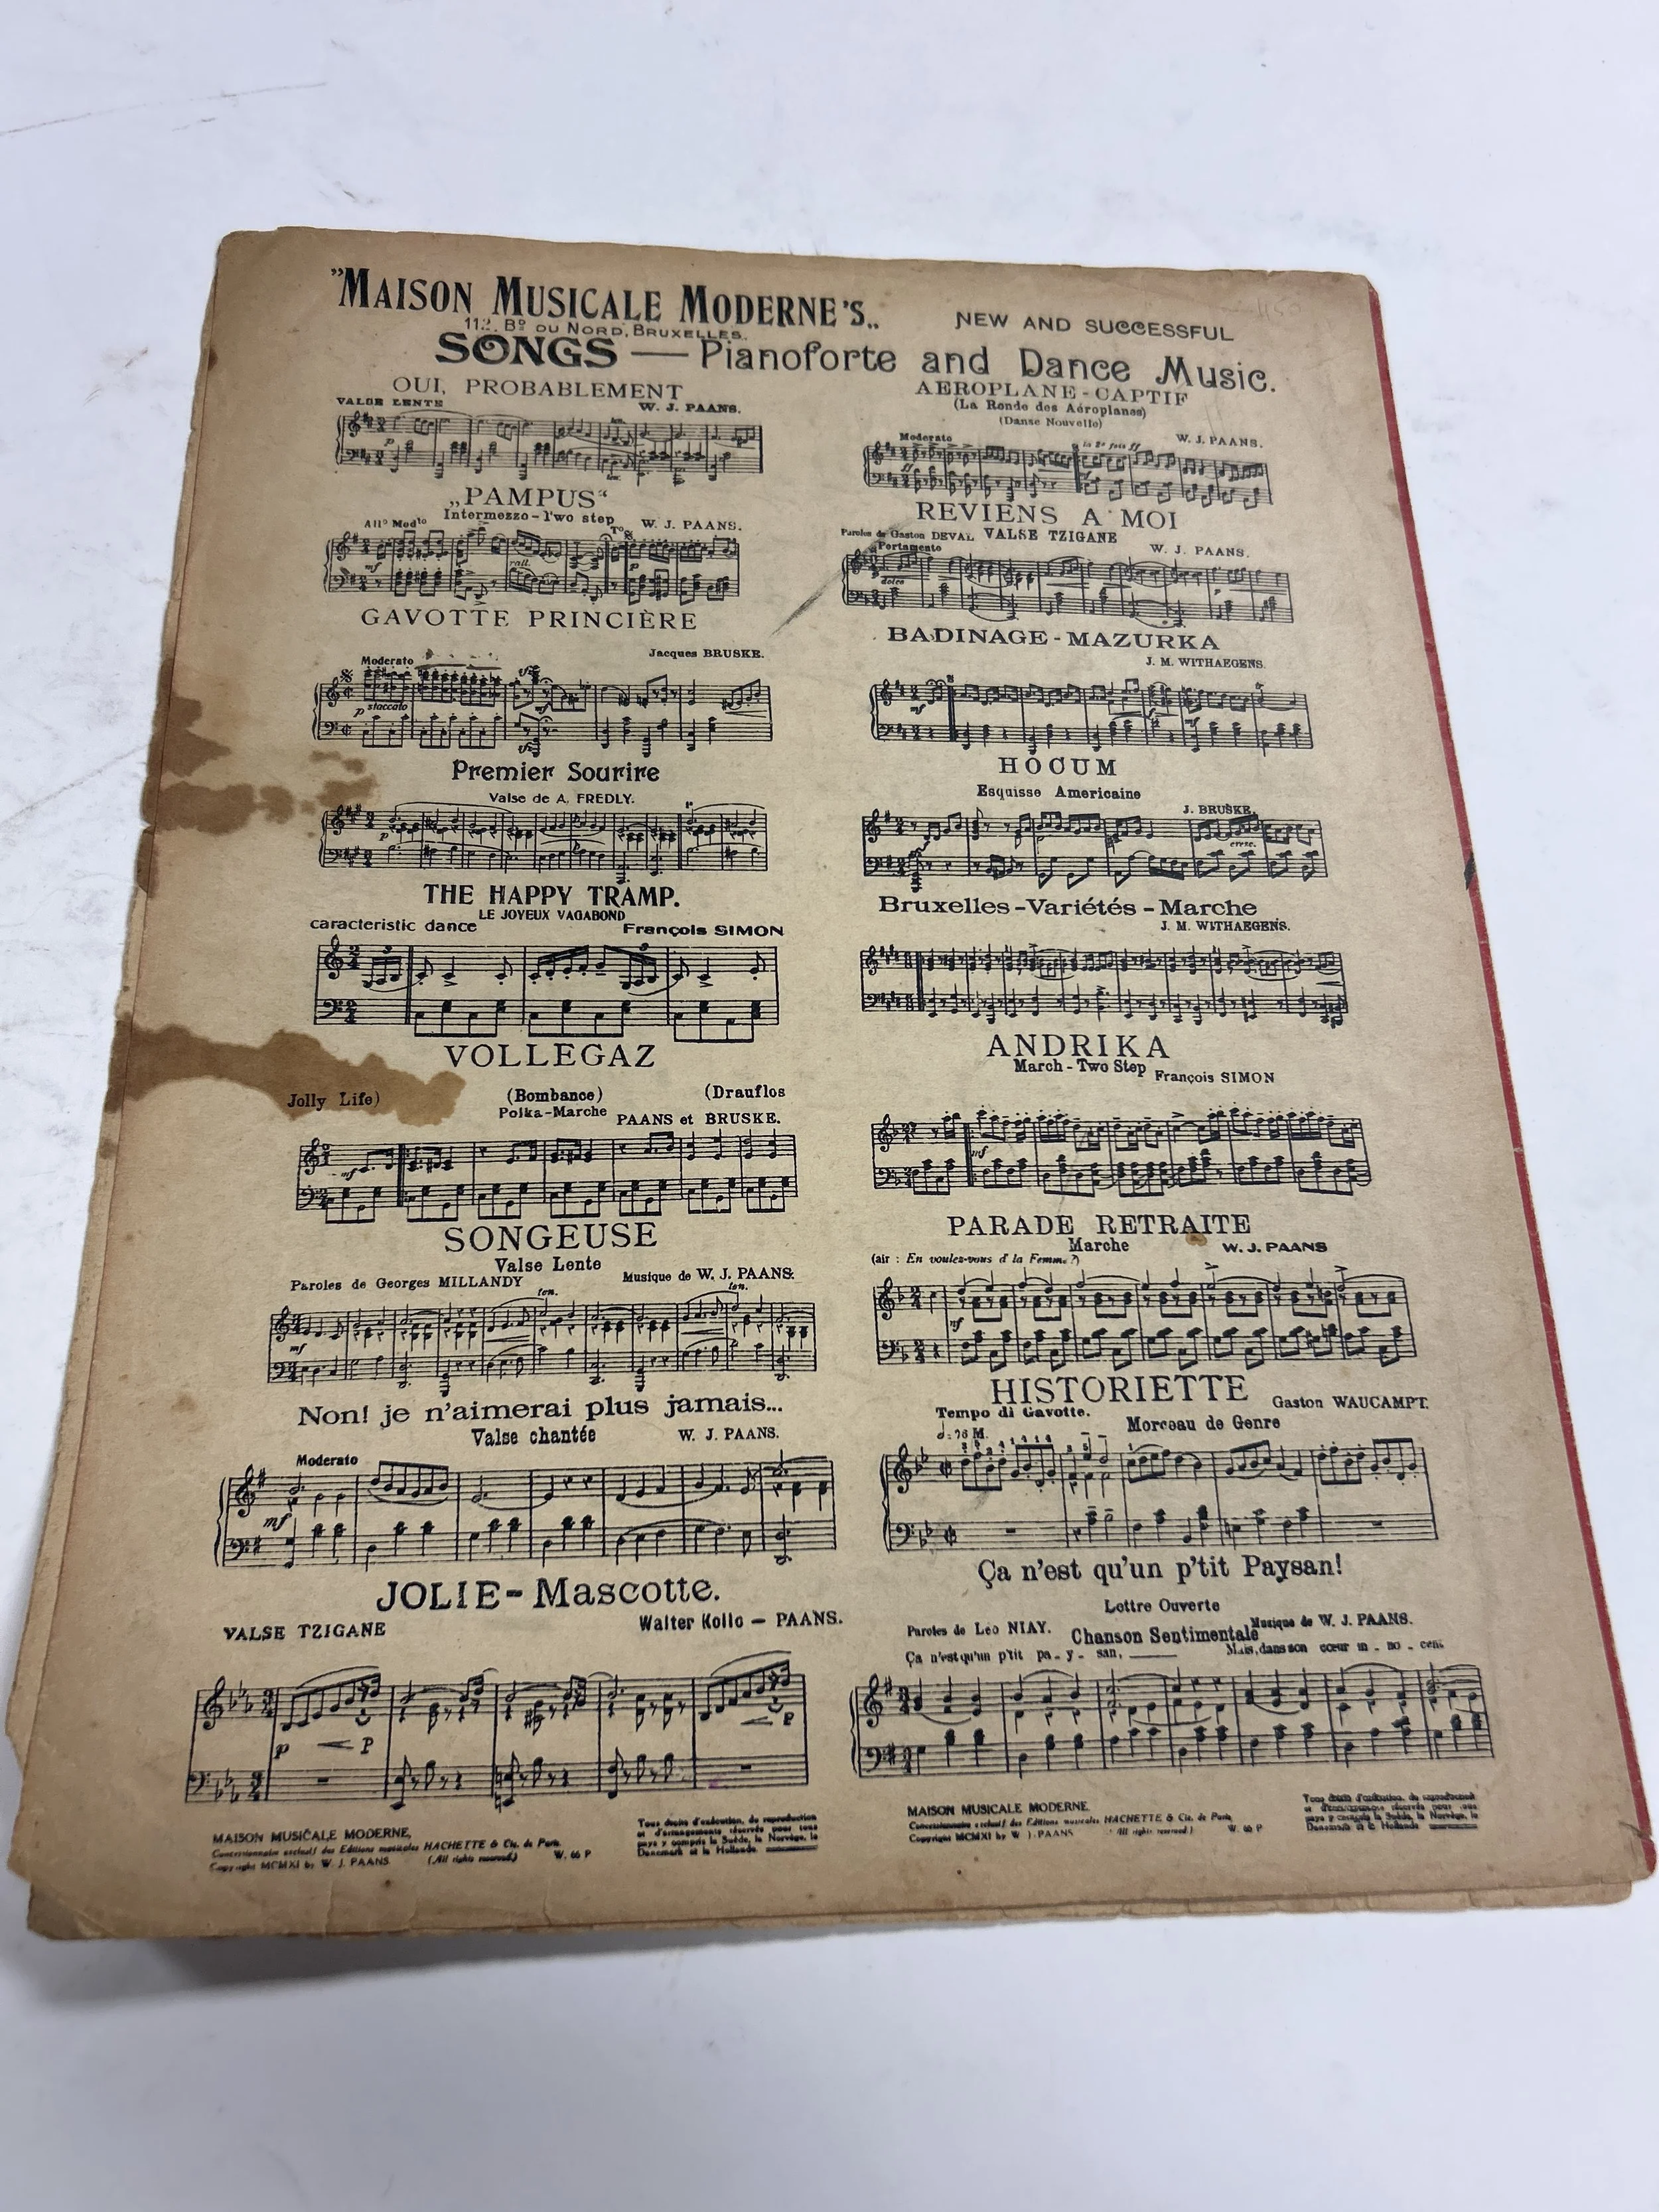 "MAISON MUSICALE MODERNE'S..
NEW AND SUCCESSFUL
112. Bᵈ DU NORD, BRUXELLES.
SONGS — Pianoforte and Dance Music.
OUI, PROBABLEMENT
VALSE LENTE
W. J. PAANS.
„PAMPUS“
Intermezzo - Two step
Allº Modto
W. J. PAANS.
mf
rall.
p
GAVOTTE PRINCIÈRE
Jacques BRUSKE.
Moderato
p staccato
Premier Sourire
Valse de A. FREDLY.
p
THE HAPPY TRAMP.
LE JOYEUX VAGABOND
caracteristic dance
François SIMON
VOLLEGAZ
Jolly Life)
(Bombance)
(Drauflos
Polka-Marche
PAANS et BRUSKE.
mf
SONGEUSE
Valse Lente
Paroles de Georges MILLANDY
Musique de W. J. PAANS.
ten.
ten.
mf
Non! je n'aimerai plus jamais...
Valse chantée
W. J. PAANS.
Moderato
mf
JOLIE-Mascotte.
VALSE TZIGANE
Walter Kollo — PAANS.
p
P
P
MAISON MUSICALE MODERNE,
Concessionnaire exclusif des Editions musicales HACHETTE & Cie. de Paris.
Copyright MCMXI by W. J. PAANS
(All rights reserved.)
W. 66 P
Tous droits d'exécution, de reproduction
et d'arrangements réservés pour tous
pays y compris la Suède, la Norvège, le
Danemark et la Hollande.
AEROPLANE - CAPTIF
(La Ronde des Aéroplanes)
(Danse Nouvelle)
Moderato
la 2e fois ff
W. J. PAANS.
ff
REVIENS A MOI
Paroles de Gaston DEVAL VALSE TZIGANE
W. J. PAANS.
Portamento
dolce
BADINAGE - MAZURKA
J. M. WITHAEGENS.
mf
HOCUM
Esquisse Americaine
J. BRUSKE
cresc.
Bruxelles-Variétés - Marche
J. M. WITHAEGENS.
ANDRIKA
March - Two Step
François SIMON
mf
PARADE RETRAITE
Marche
W. J. PAANS
(air : En voulez-vous d' la Femme?)
mf
HISTORIETTE
Gaston WAUCAMPT.
Tempo di Gavotte.
Morceau de Genre
Ça n'est qu'un p'tit Paysan!
Lettre Ouverte
Paroles de Léo NIAY.
Chanson Sentimentale
Musique de W. J. PAANS.
Ça n'est qu'un p'tit pa - y - san,
Mais, dans son cœur in - no - cent
MAISON MUSICALE MODERNE.
Concessionnaire exclusif des Editions musicales HACHETTE & Cie. de Paris,
Copyright MCMXI by W. J. PAANS
(All rights reserved.)
W. 66 P
Tous droits d'exécution, de reproduction
et d'arrangements réservés pour tous
pays y compris la Suède, la Norvège, le
Danemark et la Hollande